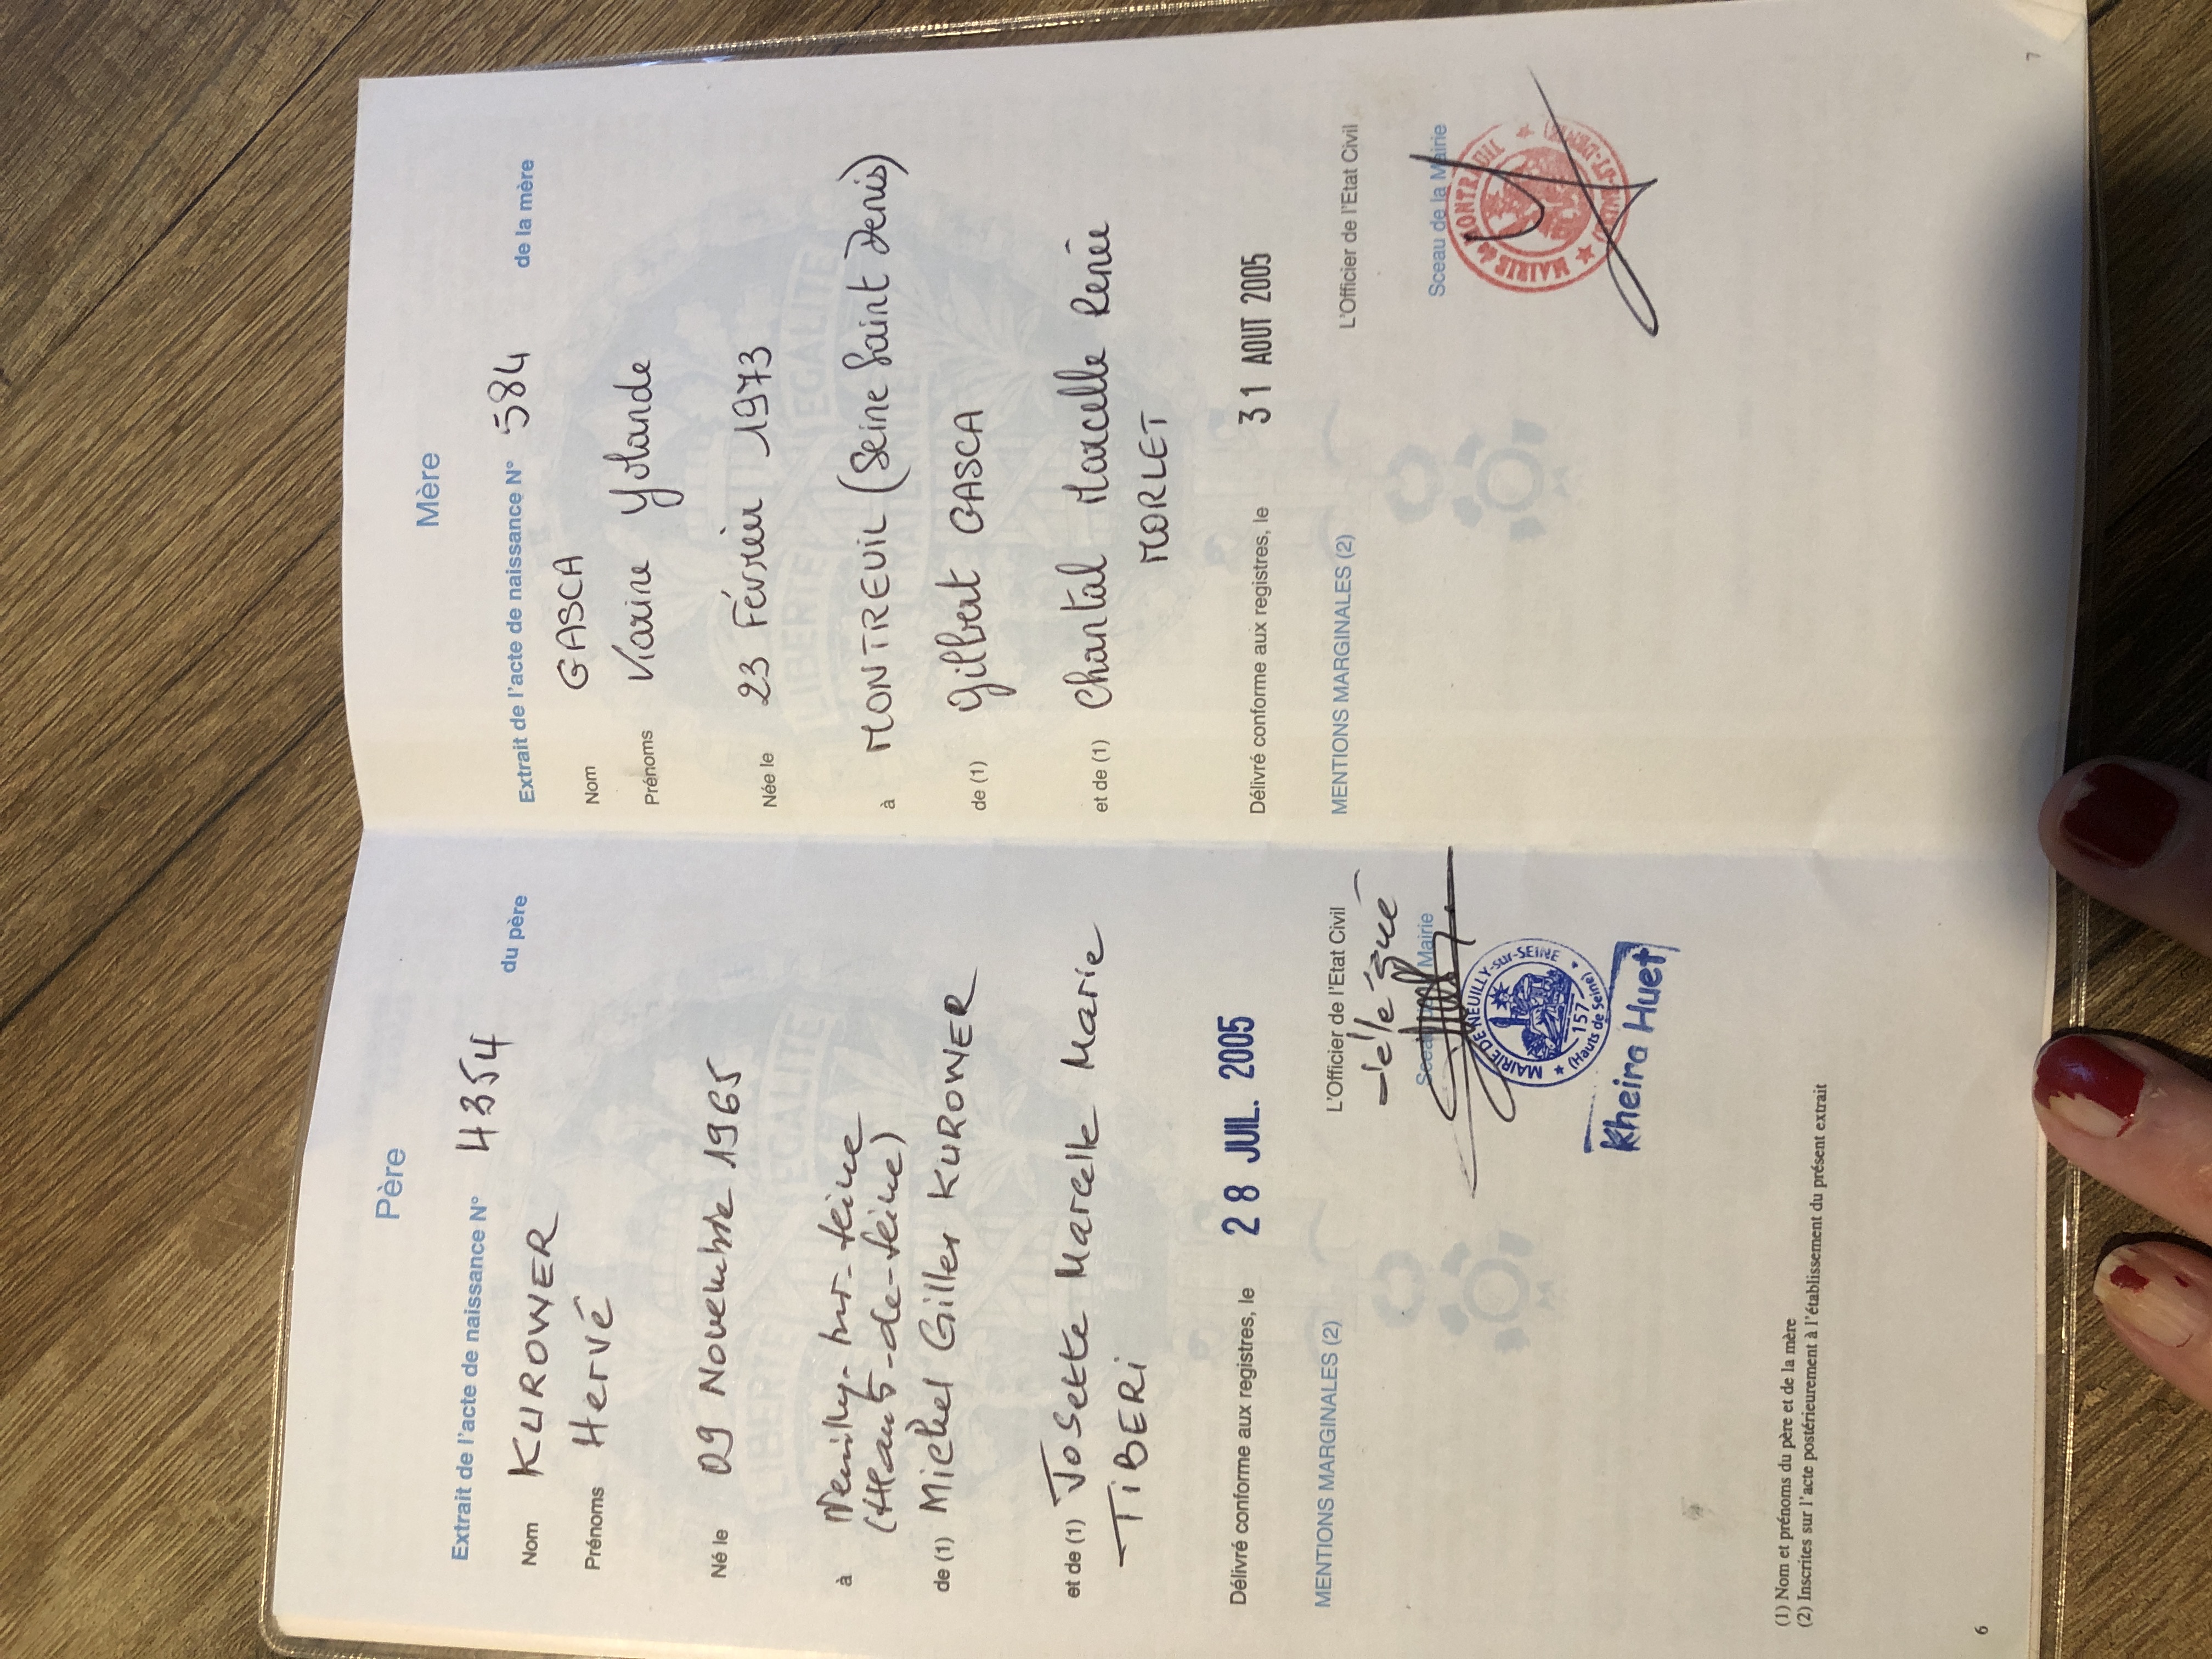 Père
Extrait de l'acte de naissance N° 4354 du père
Nom KUROWER
Prénoms Hervé
Né le 09 Novembre 1965
à Neuilly-sur-Seine
(Hauts-de-Seine)
de (1) Michel Gilles KUROWER
et de (1) Josette Marcelle Marie
TIBERI
Délivré conforme aux registres, le 28 JUIL. 2005
MENTIONS MARGINALES (2)
L'Officier de l'Etat Civil
Délégué
Sceau Mairie
MAIRIE DE NEUILLY-sur-SEINE
157
(Hauts de Seine)
Kheira Huet
(1) Nom et prénoms du père et de la mère
(2) Inscrites sur l'acte postérieurement à l'établissement du présent extrait
6
Mère
Extrait de l'acte de naissance N° 584 de la mère
Nom GASCA
Prénoms Karine Yolande
Née le 23 Février 1973
à MONTREUIL (Seine Saint Denis)
de (1) Gilbert GASCA
et de (1) Chantal Marcelle Renée
MORLET
Délivré conforme aux registres, le 31 AOUT 2005
MENTIONS MARGINALES (2)
L'Officier de l'Etat Civil
Sceau de la Mairie
MAIRIE de MONTREUIL
7
LIBERTE EGALITE
LIBERTE EGALITE